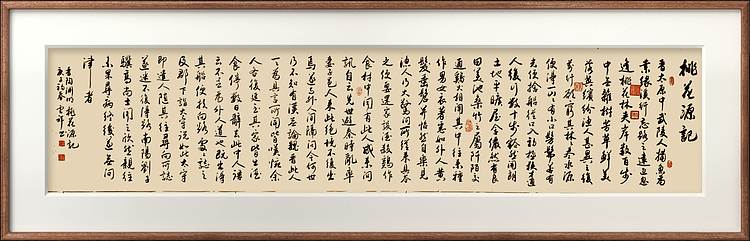 桃花源記
晉太原中武陵人捕魚為
業緣溪行忘路之遠近忽
逢桃花林夾岸數百步
中無雜樹芳草鮮美
落英繽紛漁人甚異之復
前行欲窮其林林盡水源
便得一山山有小口髣髴若有
光便捨船從口入初極狹纔通
人復行數十步豁然開朗
土地平曠屋舍儼然有良
田美池桑竹之屬阡陌交
通雞犬相聞其中往來種
作男女衣著悉如外人黃
髮垂髫並怡然自樂見
漁人乃大驚問所從來具答
之便要還家設酒殺雞作
食村中聞有此人咸來問
訊自云先世避秦時亂率
妻子邑人來此絕境不復出
焉遂與外人間隔問今何世
乃不知有漢無論魏晉此人
一一為具言所聞皆嘆惋餘
人各復延至其家皆出酒
食停數日辭去此中人語
云不足為外人道也既出得
其船便扶向路處處誌之
及郡下詣太守說如此太守
即遣人隨其往尋向所誌
遂迷不復得路南陽劉子
驥高尚士也聞之欣然規往
未果尋病終後遂無問
津者
晉陶淵明桃花源記
庚子初春